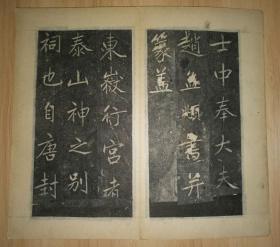 士中奉大夫
趙孟頫書并
篆蓋
東嶽行宮者
泰山神之別
祠也自唐封